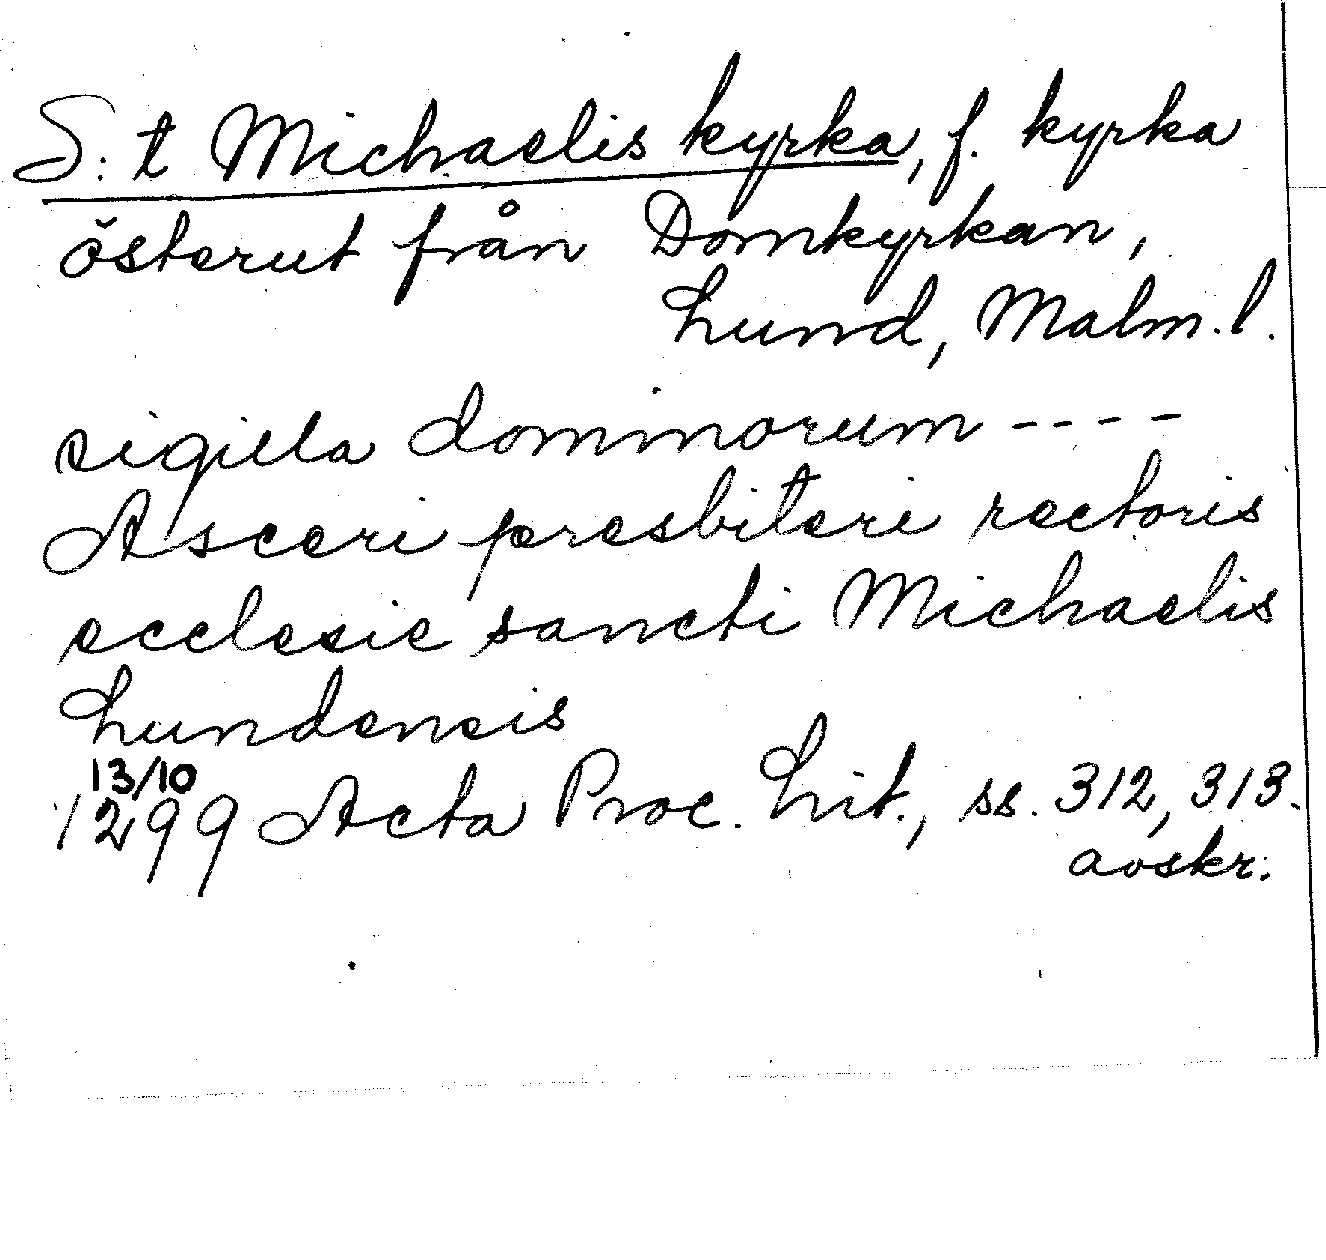 S:t Michaelis kyrka, f. kyrka
österut från Domkyrkan,
Lund, Malm. l.
sigilla dominorum ----
Asceri presbiteri rectoris
ecclesie sancti Michaelis
Lundensis
13/10
1299 Acta Proc. Lit., ss. 312, 313.
avskr.